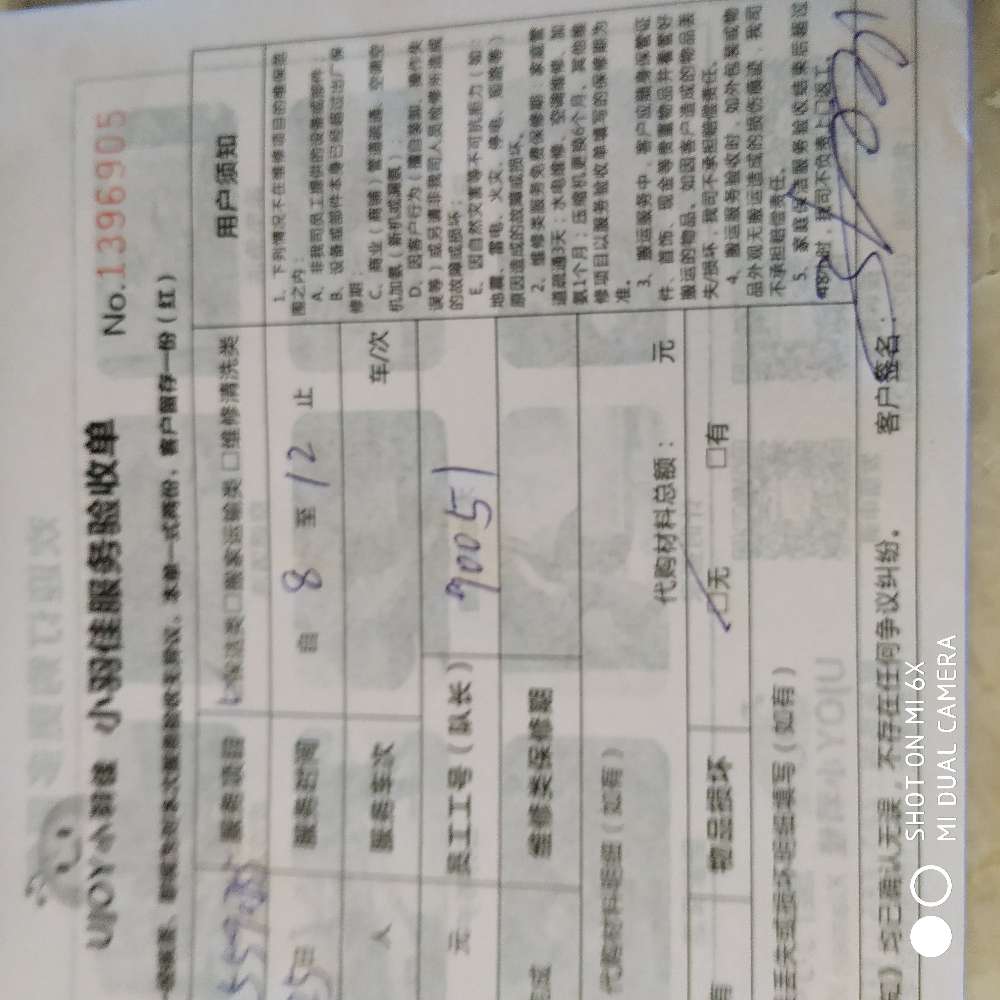 No.1396905
UJOY小羽佳 小羽佳服务验收单
客户留存一份（红）
服务项目 保洁类 □搬家运输类 □维修清洗类
服务时间 自 8 至 12 止
人 服务车次 车/次
元 员工工号（队长） 90051
维修类保修期
代购材料明细（如有） 代购材料总额： 元
有 物品损坏 □无 □有
丢失或损坏明细填写（如有）
用户须知
1、下列情况不在维修项目的维保范
围之内：
A、非我司员工提供的设备或部件；
B、设备或部件本身已经超过出厂保
修期；
C、商业（商铺）管道疏通、空调空
机加氟（新机或漏氟）；
D、因客户行为（擅自装卸、操作失
误等）或另请非我司人员检修所造成
的故障或损坏；
E、因自然灾害等不可抗拒力（如：
地震、雷电、火灾、停电、短路等）
原因造成的故障或损坏。
2、维修类服务免费保修期：家庭管
道疏通5天；水电维修、空调维修、加
氟1个月；压缩机更换6个月，其他维
修项目以服务验收单填写的保修期为
准。
3、搬运服务中，客户应随身保管证
件、首饰、现金等贵重物品并看管好
搬运的物品。如因客户造成的物品丢
失/损坏，我司不承担赔偿责任。
4、搬运服务验收时，如外包装或物
品外观无搬运造成的损伤痕迹，我司
不承担赔偿责任。
5、家庭保洁服务验收结束后超过
48小时，我司不负责上门返工。
均已确认无误，不存在任何争议纠纷。 客户签名：
SHOT ON MI 6X
MI DUAL CAMERA